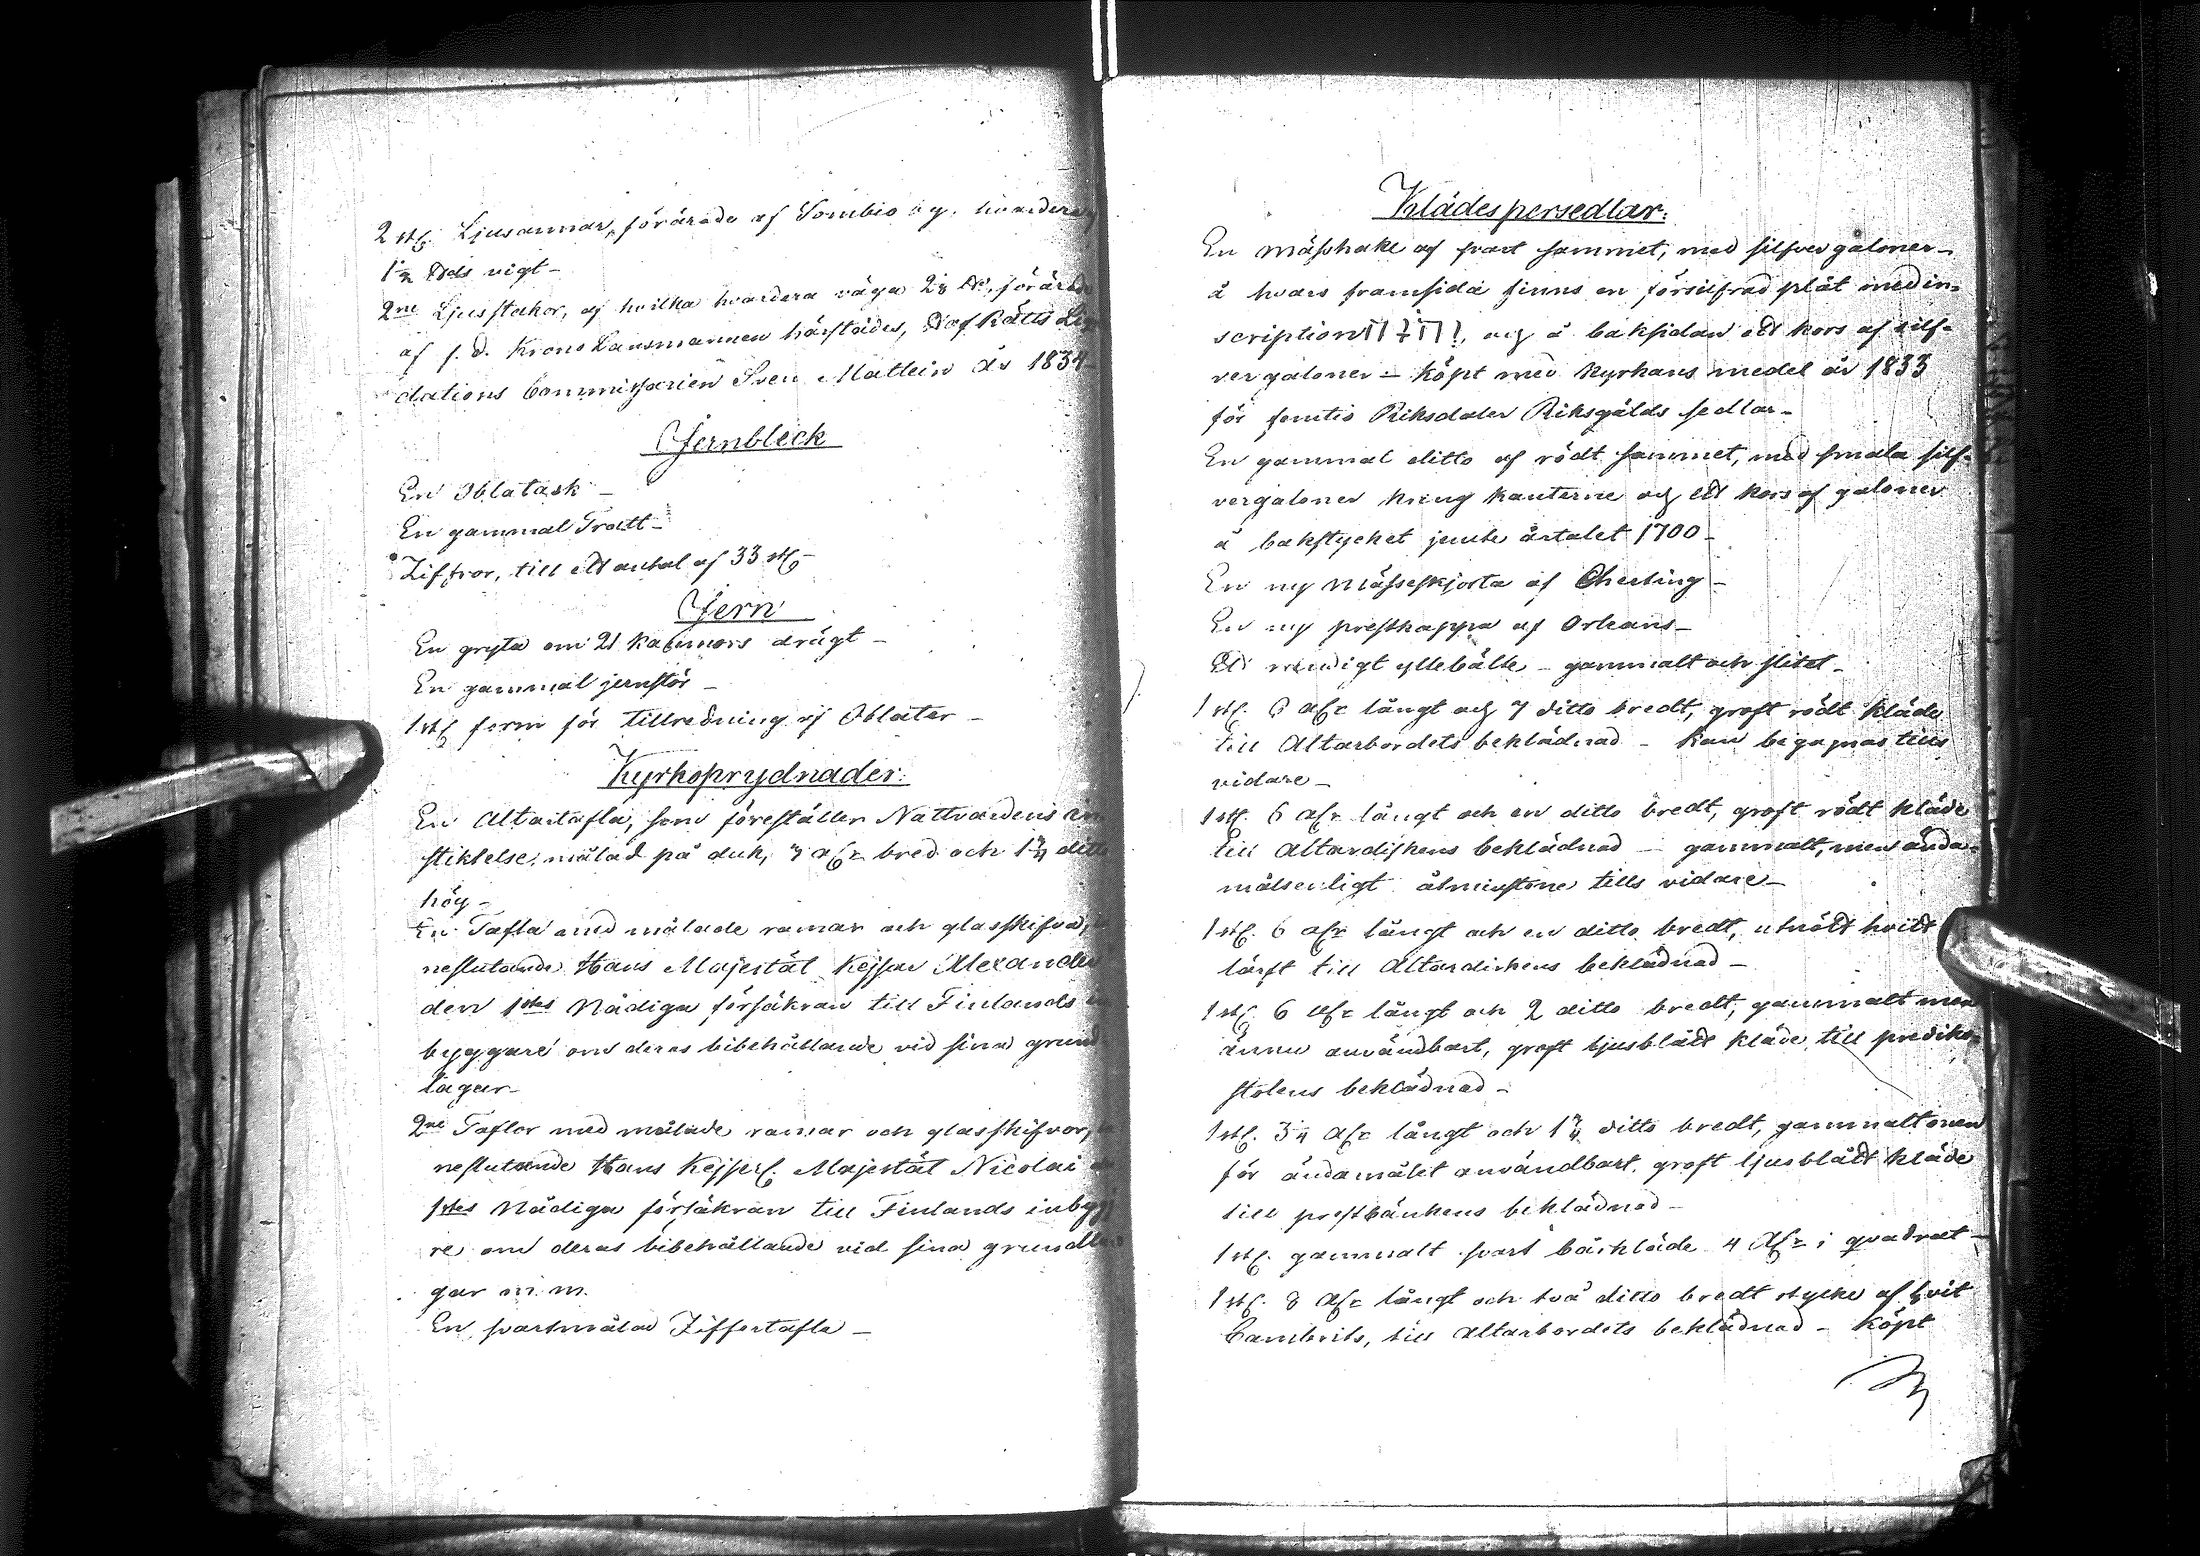 2 st. Ljusarmar, förärade af Sombio by. hvardera
1½ ℔ds vigt –
2ne Ljusstakar, af hvilka hvardera väga 2⅛ ℔, förärade
af f. d. Krono Länsmannen härstädes, Vaf Rätts Li
dations Commissarien Sven Mattein år 1834
Jernbleck
En Oblatask –
En gammal Tratt –
Ziffror, till ett antal af 33 st. –
Jern
En gryta om 21 kannors drägt –
En gammal jernstör –
1 st. form för tillredning af Oblater –
Kyrkoprydnader:
En Altartafla, som föreställer Nattvardens in
stiktelse, målad på duk, 3 aln bred och 1¾ ditto
hög –
En Tafla med målade ramar och glasskifva,
neslutande Hans Majestät Kejsar Alexander
den 1stes Nådiga försäkran till Finlands
byggare om deras bibehållande vid sina grund
lagar –
2ne Taflor med målade ramar och glasskifvor,
neslutande Hans Kejserl. Majestät Nicolai
1stes Nådiga försäkran till Finlands inbyg
re om deras bibehållande vid sina grundla
gar m. m.
En svartmålad Ziffertafla –
Klädespersedlar:
En Mässhake af svart sammet, med silfver galoner –
å hvars framsida finns en försilfrad plåt med in-
scription, och å baksidan ett kors af silf-
ver galoner – köpt med Kyrkans medel år 1833
för femtio Riksdaler Riksgälds sedlar –
En gammal ditto af rödt sammet, med smala silf-
vergaloner kring kanterne och ett kors af galoner
å bakstycket jemte årtalet 1700 –
En ny Mässeskjorta af Cheeting –
En ny prestkappa af Orleans –
Ett randigt yllebälte – gammalt och slitet –
1 st. 6 aln långt och 7 ditto bredt, groft rödt kläde
till Altarbordets beklädnad – kan begagnas tills
vidare –
1 st. 6 aln långt och en ditto bredt, groft rödt kläde
till Altardiskens beklädnad – gammalt, men ända-
målsenligt åtminstone tills vidare –
1 st. 6 aln långt och en ditto bredt, utnött hvitt
lärft till Altardiskens beklädnad –
1 st. 6 aln långt och 2 ditto bredt, gammalt men
ännu användbart, groft ljusblått kläde, till prediko-
stolens beklädnad –
1 st. 3¼ aln långt och 1¾ ditto bredt, gammalt men
för ändamålet användbart, groft ljusblått kläde
till prestbänkens beklädnad –
1 st. gammalt svart bårkläde 4 aln i quadrat –
1 st. 8 aln långt och två ditto bredt stycke af hvit
Cambrits, till altarbordets beklädnad – köpt